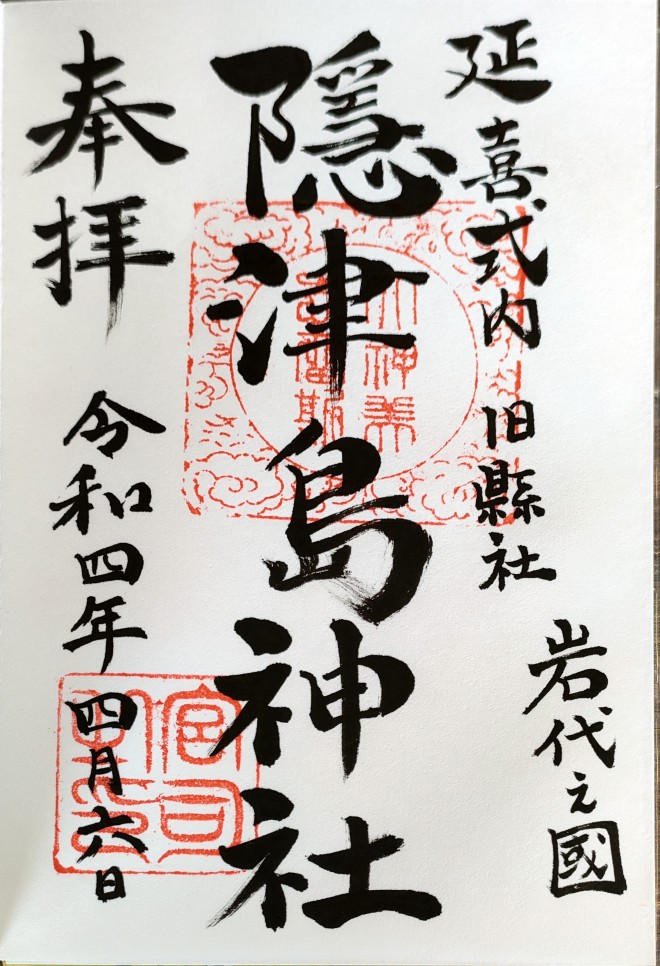 延喜式内 旧縣社
岩代之國
隱津島神社
奉拝
令和四年 四月六日
宮司